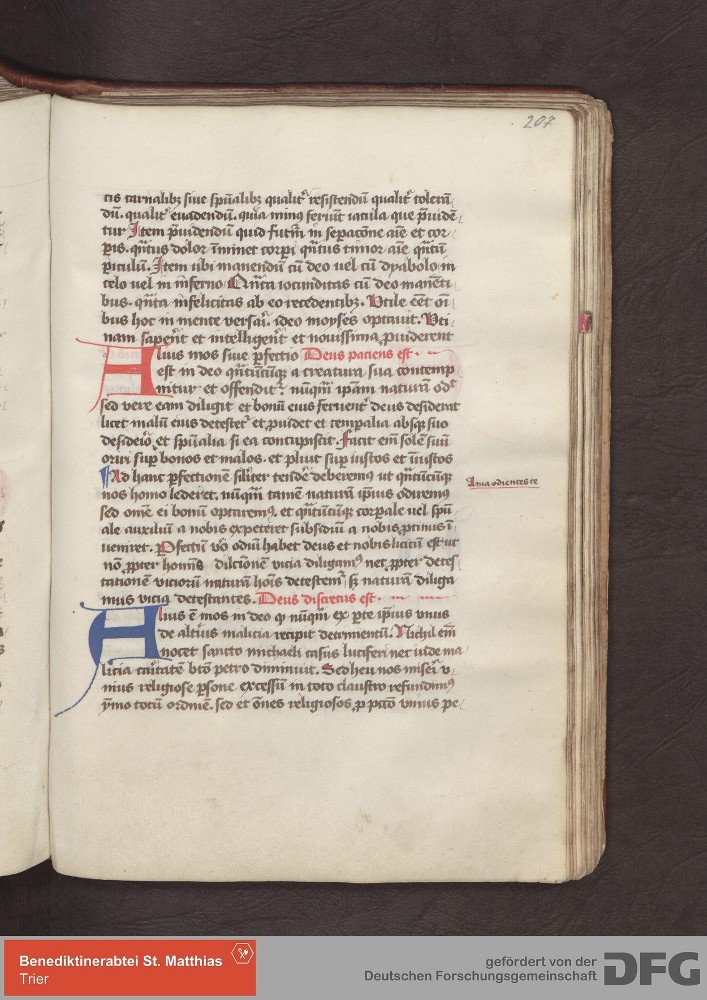 207
tis carnalibꝫ siue spūalibꝫ qualit᷑ resistendū qualit᷑ tolerā
dū. qualit᷑ euadendū. quia minꝰ feriūt iacula que p̄uidē
tur Item p̄uidendū quid futm̄ in sepacōne aīe et cor
pis. qn̄tus dolor īminet corpi qn̄tus timor aīe qn̄tū
piculū. Item ubi manendū cū deo uel cū dyabolo in
celo uel in inferno Qn̄ta iocunditas cū deo manēti
bus. qn̄ta infelicitas ab eo recedentibꝫ. Vtile eēt oī
bus hoc in mente versari. ideo moyses optauit. Vti
nam saperēt et intelligerēt et nouissima ꝓuiderent
Alius mos siue ꝑfectio Deus paciens est.
est in deo qn̄tūcūqꝫ a creatura sua contemp
nitur et offendit᷑ nūqm̄ ipam naturā od̓
sed vere eam diligit et bonū eius feruent᷑ deus desiderat
licet malū eius detestet᷑ et ꝓuidet et tempalia absqꝫ suo
desideio et spūalia si ea concupiscit. Facit em̄ solē suū
oriri suꝑ bonos et malos. et pluit suꝑ iustos et īiustos
Ad hanc ꝑfectionē silit᷑ tendē deberemꝰ ut qn̄tūcūqꝫ
nos homo lederet. nūqm̄ tamē naturā ipius odiremꝰ
sed omē ei bonū optaremꝰ. et qn̄tūcūqꝫ corpale uel spū
ale auxiliū a nobis expeteret subsidiū a nobis ꝓtinus ī
ueniret. Pfectū vō odiū habet deus et nobis licitū est ut
nō ꝓpter hominis dilcīonē vicia diligamꝰ nec ꝓpter detes
tationē viciorū naturā hoīs detestemꝰ sꝫ naturā diliga
mus vicia detestantes. Deus discretus est.
Alius ē mos in deo qꝫ nūqm̄ ex pte ipius vnus
de altius malicia recipit detrimentū. Nichil em̄
nocet sancto michaeli casus luciferi nec iude ma
licia caritatē bto petro diminuit. Sed heu nos miseri v
nius religiose ꝑsone excessū in toto claustro refundimꝰ
ymo totū ordinē. sed et oēs religiosos ꝓ pctō vnius pe
Ama odientes te
Benediktinerabtei St. Matthias
Trier
gefördert von der
Deutschen Forschungsgemeinschaft
DFG